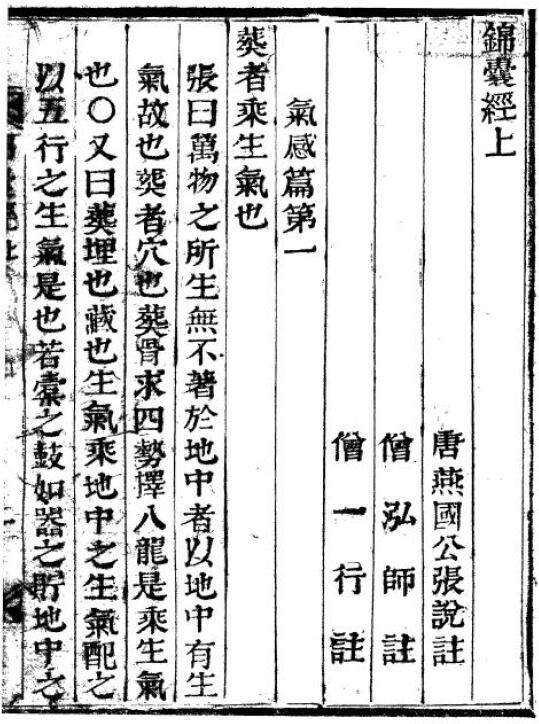 錦囊經上
唐燕國公張說註
僧泓師註
僧一行註
氣感篇第一
葬者乘生氣也
張曰萬物之所生無不著於地中者以地中有生
氣故也葬者穴也葬骨求四勢擇八龍是乘生氣
也〇又曰葬埋也藏也生氣乘地中之生氣配之
以五行之生氣是也若橐之鼓如器之貯地中之